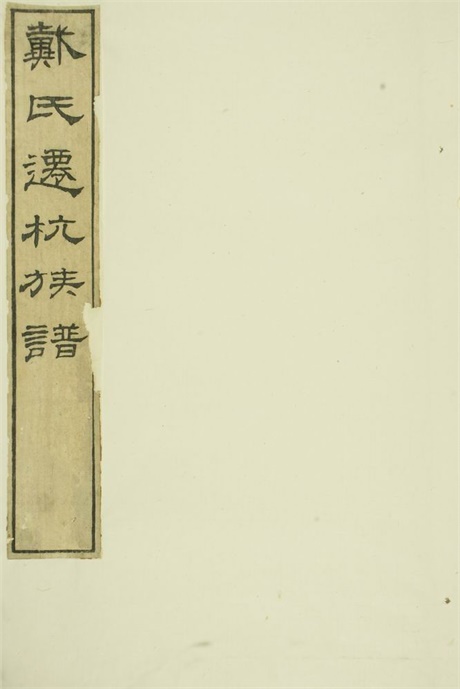 戴氏遷杭族譜